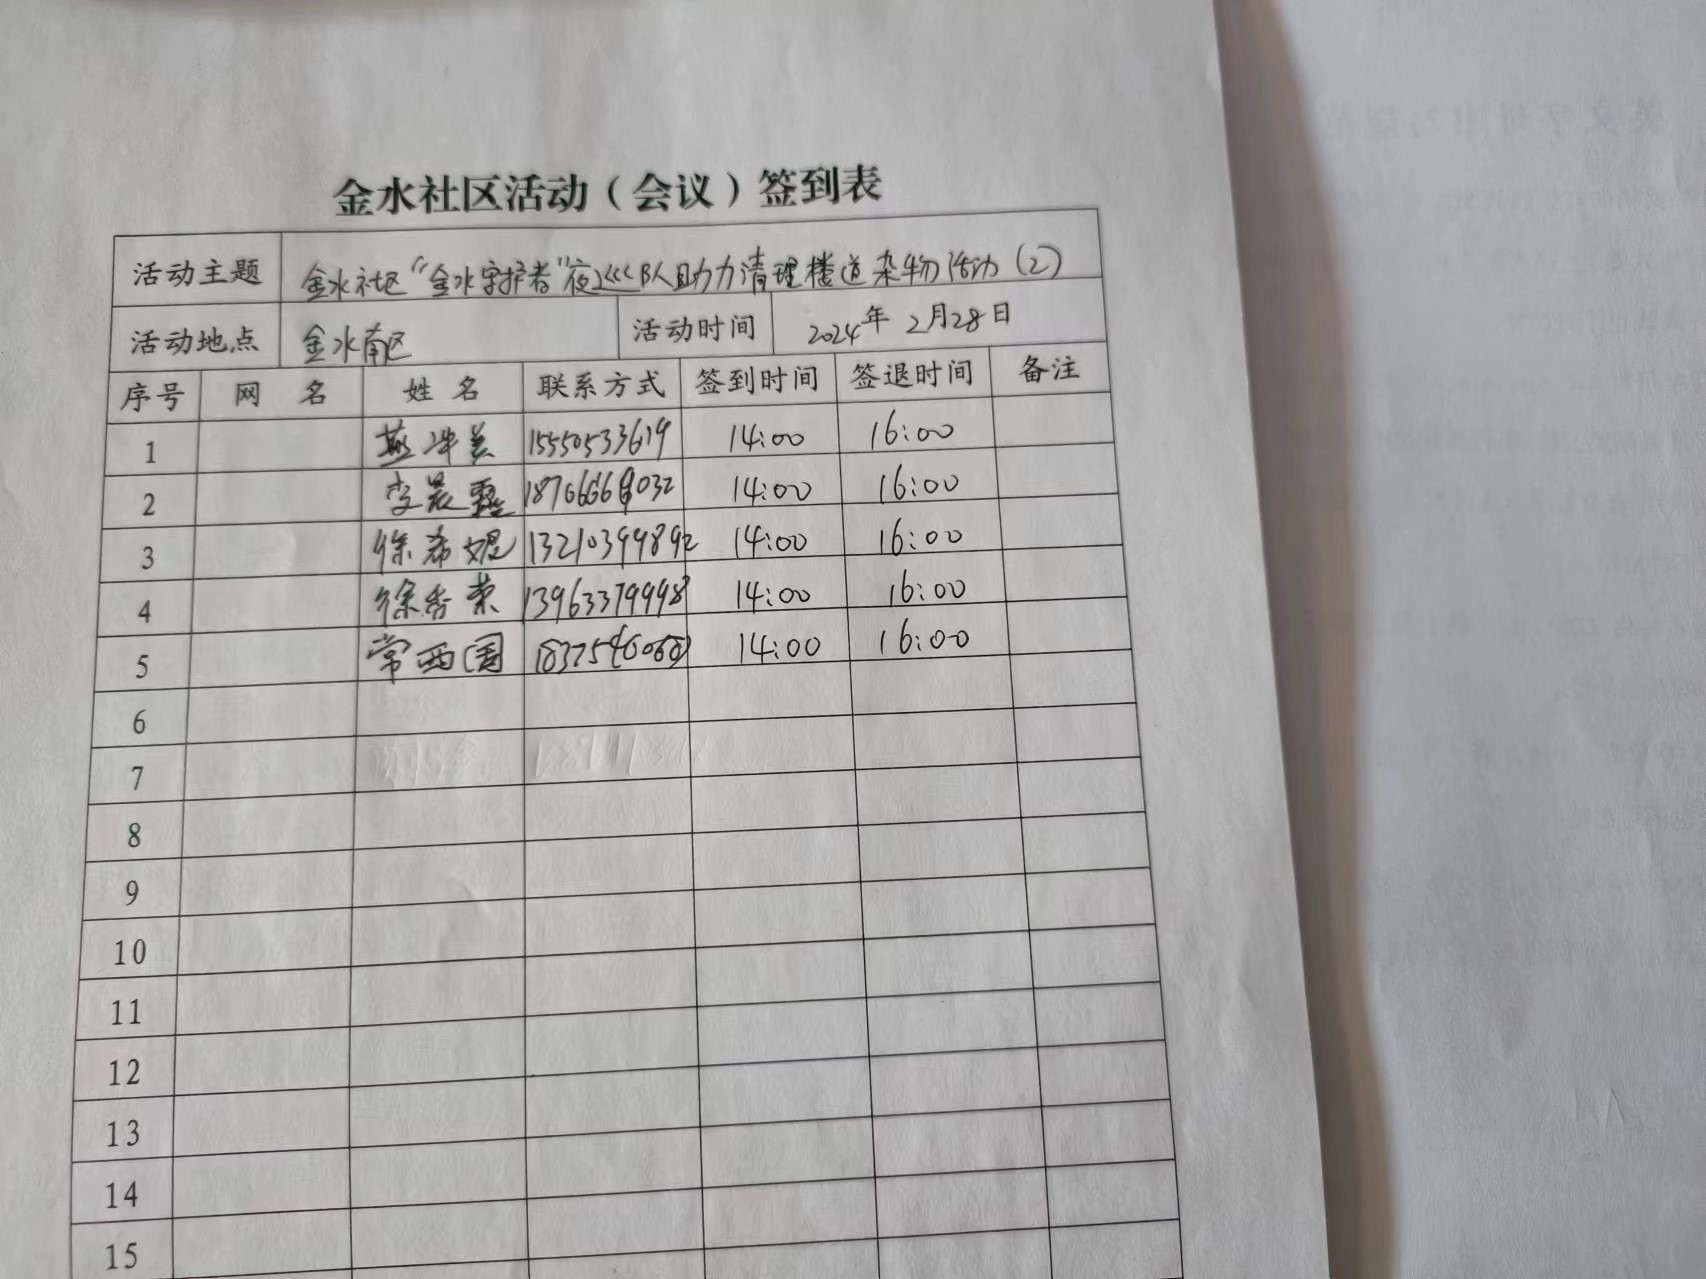 金水社区活动（会议）签到表
活动主题 金水社区“金水守护者”夜巡队助力清理楼道杂物活动（2）
活动地点 金水南区 活动时间 2024年 2月28日
序号 网 名 姓 名 联系方式 签到时间 签退时间 备注
1 15550533619 14:00 16:00
2 李晨露 14:00 16:00
3 徐希妮 13210399892 14:00 16:00
4 徐香荣 13963379998 14:00 16:00
5 常西国 14:00 16:00
6
7
8
9
10
11
12
13
14
15